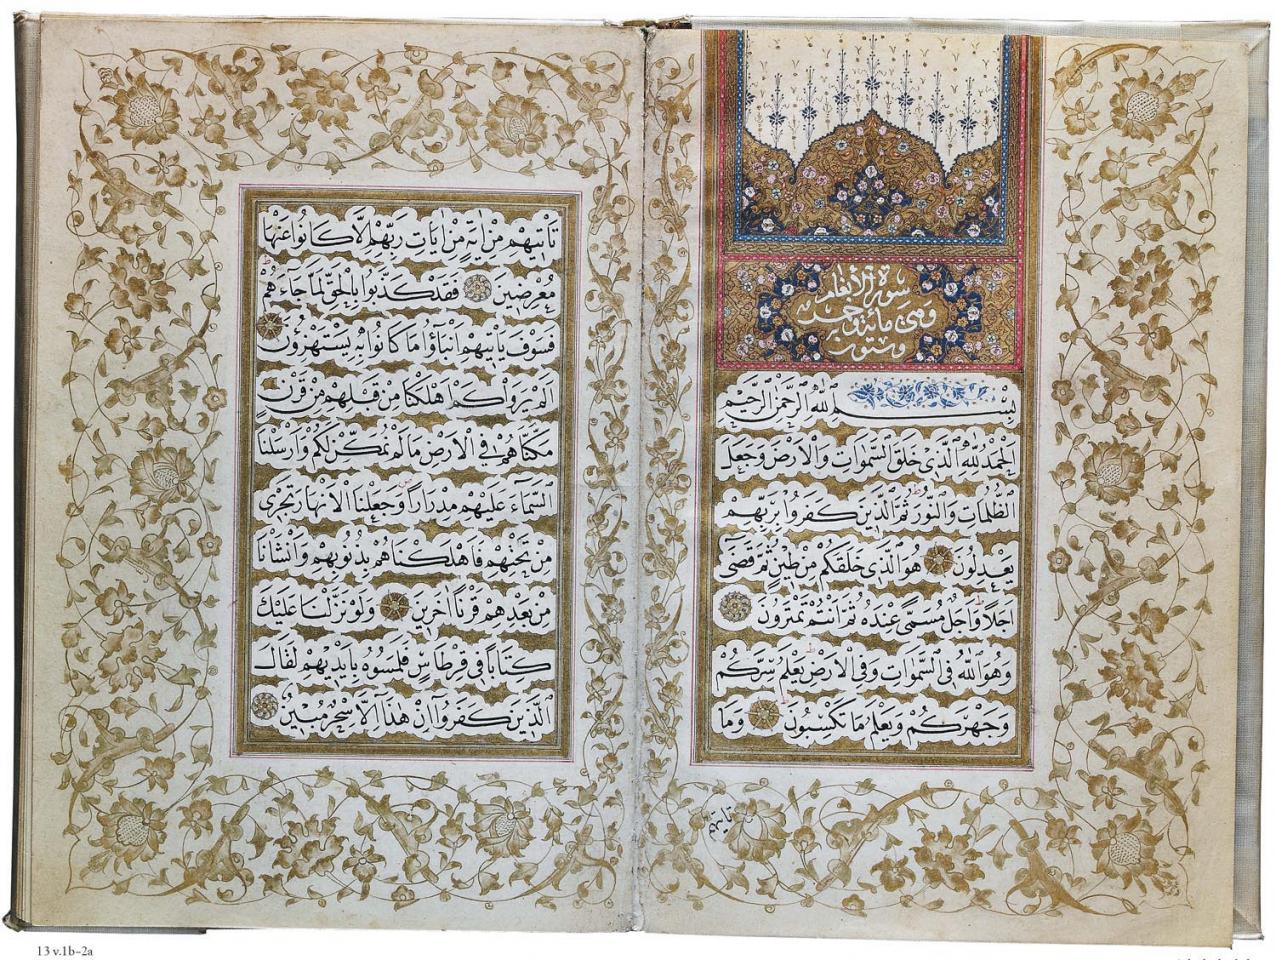 سورة الأنعام
وهي مائة وخمس
وستون
بِسْمِ اللّٰهِ الرَّحْمٰنِ الرَّحِيمِ
اَلْحَمْدُ لِلّٰهِ الَّذِي خَلَقَ السَّمٰوَاتِ وَالْاَرْضَ وَجَعَلَ
الظُّلُمَاتِ وَالنُّورَ ثُمَّ الَّذِينَ كَفَرُوا بِرَبِّهِمْ
يَعْدِلُونَ هُوَ الَّذِي خَلَقَكُمْ مِنْ طِينٍ ثُمَّ قَضٰى
اَجَلًا وَاَجَلٌ مُسَمًّى عِنْدَهُ ثُمَّ اَنْتُمْ تَمْتَرُونَ
وَهُوَ اللّٰهُ فِي السَّمٰوَاتِ وَفِي الْاَرْضِ يَعْلَمُ سِرَّكُمْ
وَجَهْرَكُمْ وَيَعْلَمُ مَا تَكْسِبُونَ وَمَا
تأتيهم
تَأْتِيهِمْ مِنْ اٰيَةٍ مِنْ اٰيَاتِ رَبِّهِمْ اِلَّا كَانُوا عَنْهَا
مُعْرِضِينَ فَقَدْ كَذَّبُوا بِالْحَقِّ لَمَّا جَاءَهُمْ
فَسَوْفَ يَأْتِيهِمْ اَنْبَاؤُا مَا كَانُوا بِهِ يَسْتَهْزِؤُنَ
اَلَمْ يَرَوْا كَمْ اَهْلَكْنَا مِنْ قَبْلِهِمْ مِنْ قَرْنٍ
مَكَّنَّاهُمْ فِي الْاَرْضِ مَا لَمْ نُمَكِّنْ لَكُمْ وَاَرْسَلْنَا
السَّمَاءَ عَلَيْهِمْ مِدْرَارًا وَجَعَلْنَا الْاَنْهَارَ تَجْرِي
مِنْ تَحْتِهِمْ فَاَهْلَكْنَاهُمْ بِذُنُوبِهِمْ وَاَنْشَأْنَا
مِنْ بَعْدِهِمْ قَرْنًا اٰخَرِينَ وَلَوْ نَزَّلْنَا عَلَيْكَ
كِتَابًا فِي قِرْطَاسٍ فَلَمَسُوهُ بِاَيْدِيهِمْ لَقَالَ
الَّذِينَ كَفَرُوا اِنْ هٰذَا اِلَّا سِحْرٌ مُبِينٌ
13 v.1b–2a